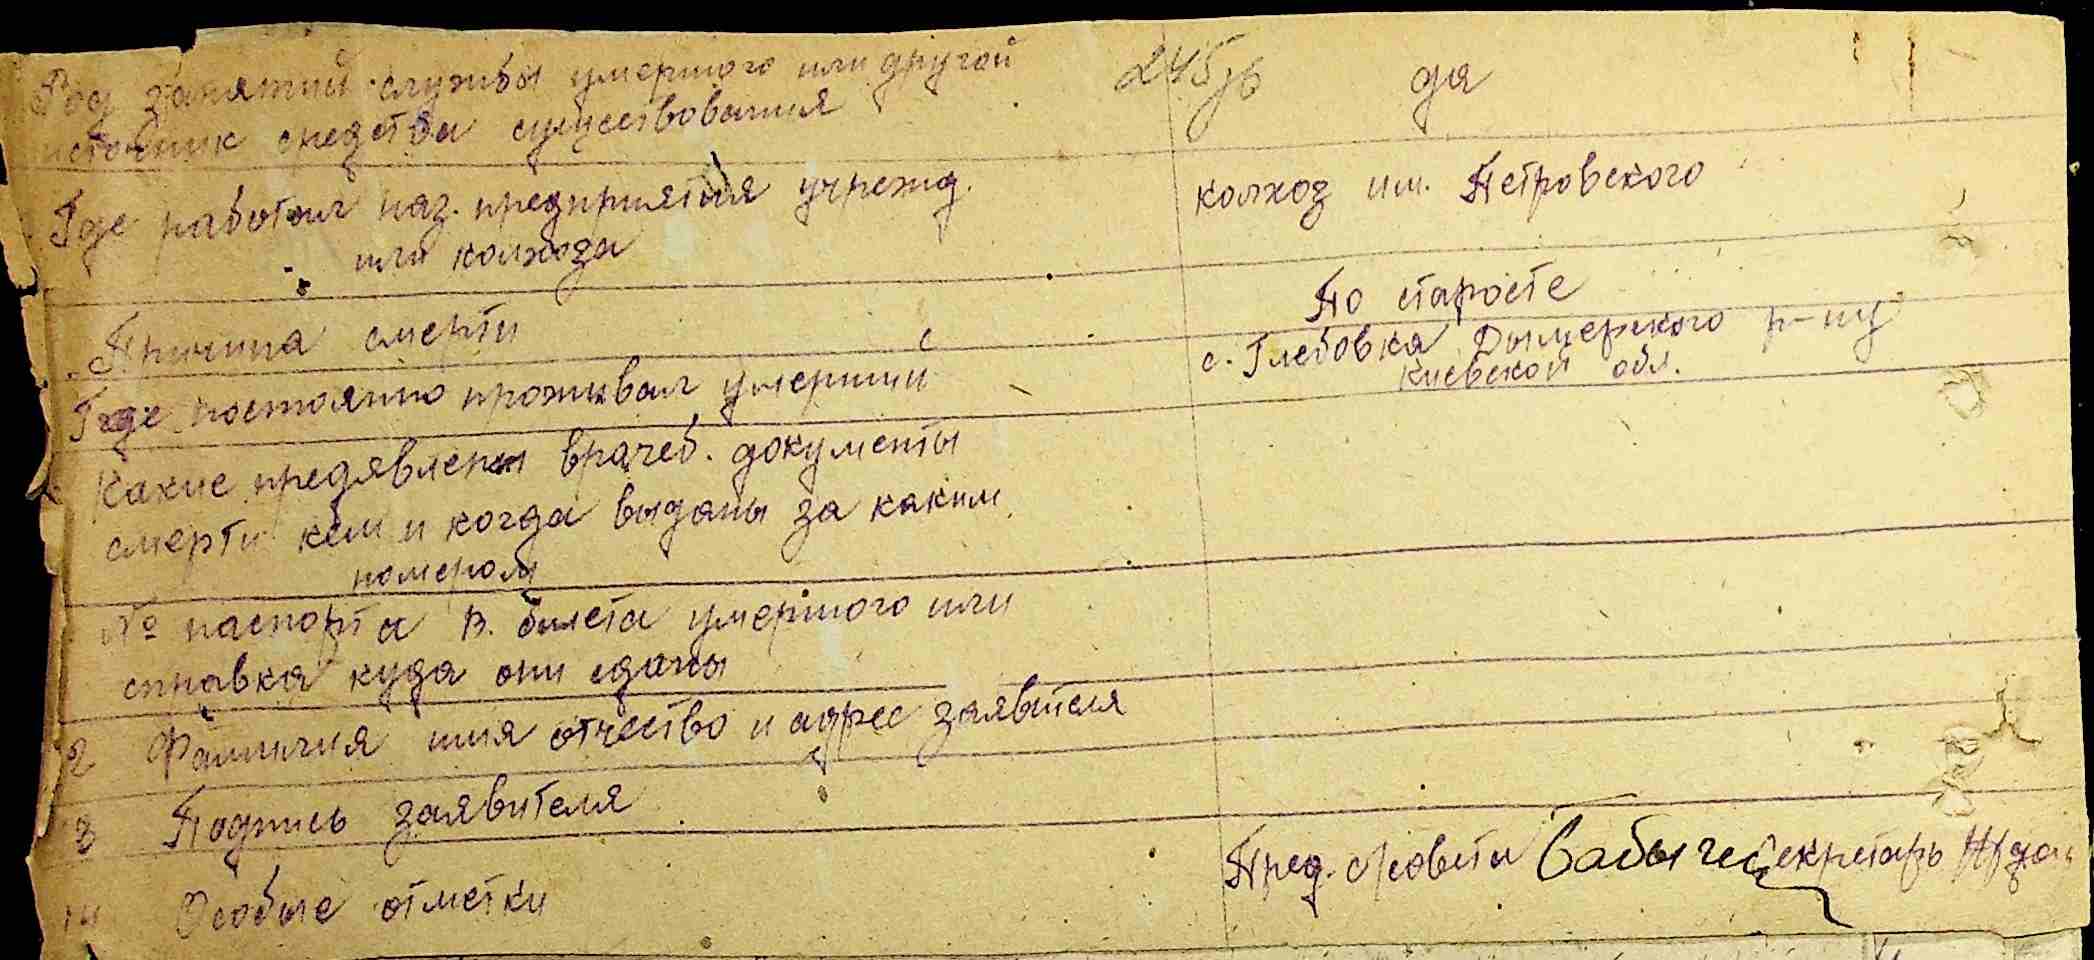 Род занятий службы умершого или другой
245 зв да
источник средства существования
Где работал наз. предприятия учрежд.
колхоз им. Петровского
или колхоза
По старосте
Причина смерти
с. Глебовка Дымерского р-ну
Киевской обл.
Где постоянно проживал умерший
Какие предявлены врачеб. документы
смерти кем и когда выданы за каким
номером
№ паспорта в. билета умершого или
справка куда они сданы
2 Фамилия имя отчество и адрес заявителя
3 Подпись заявителя
Пред. с/совета Бабыч Секретарь
Особые отметки